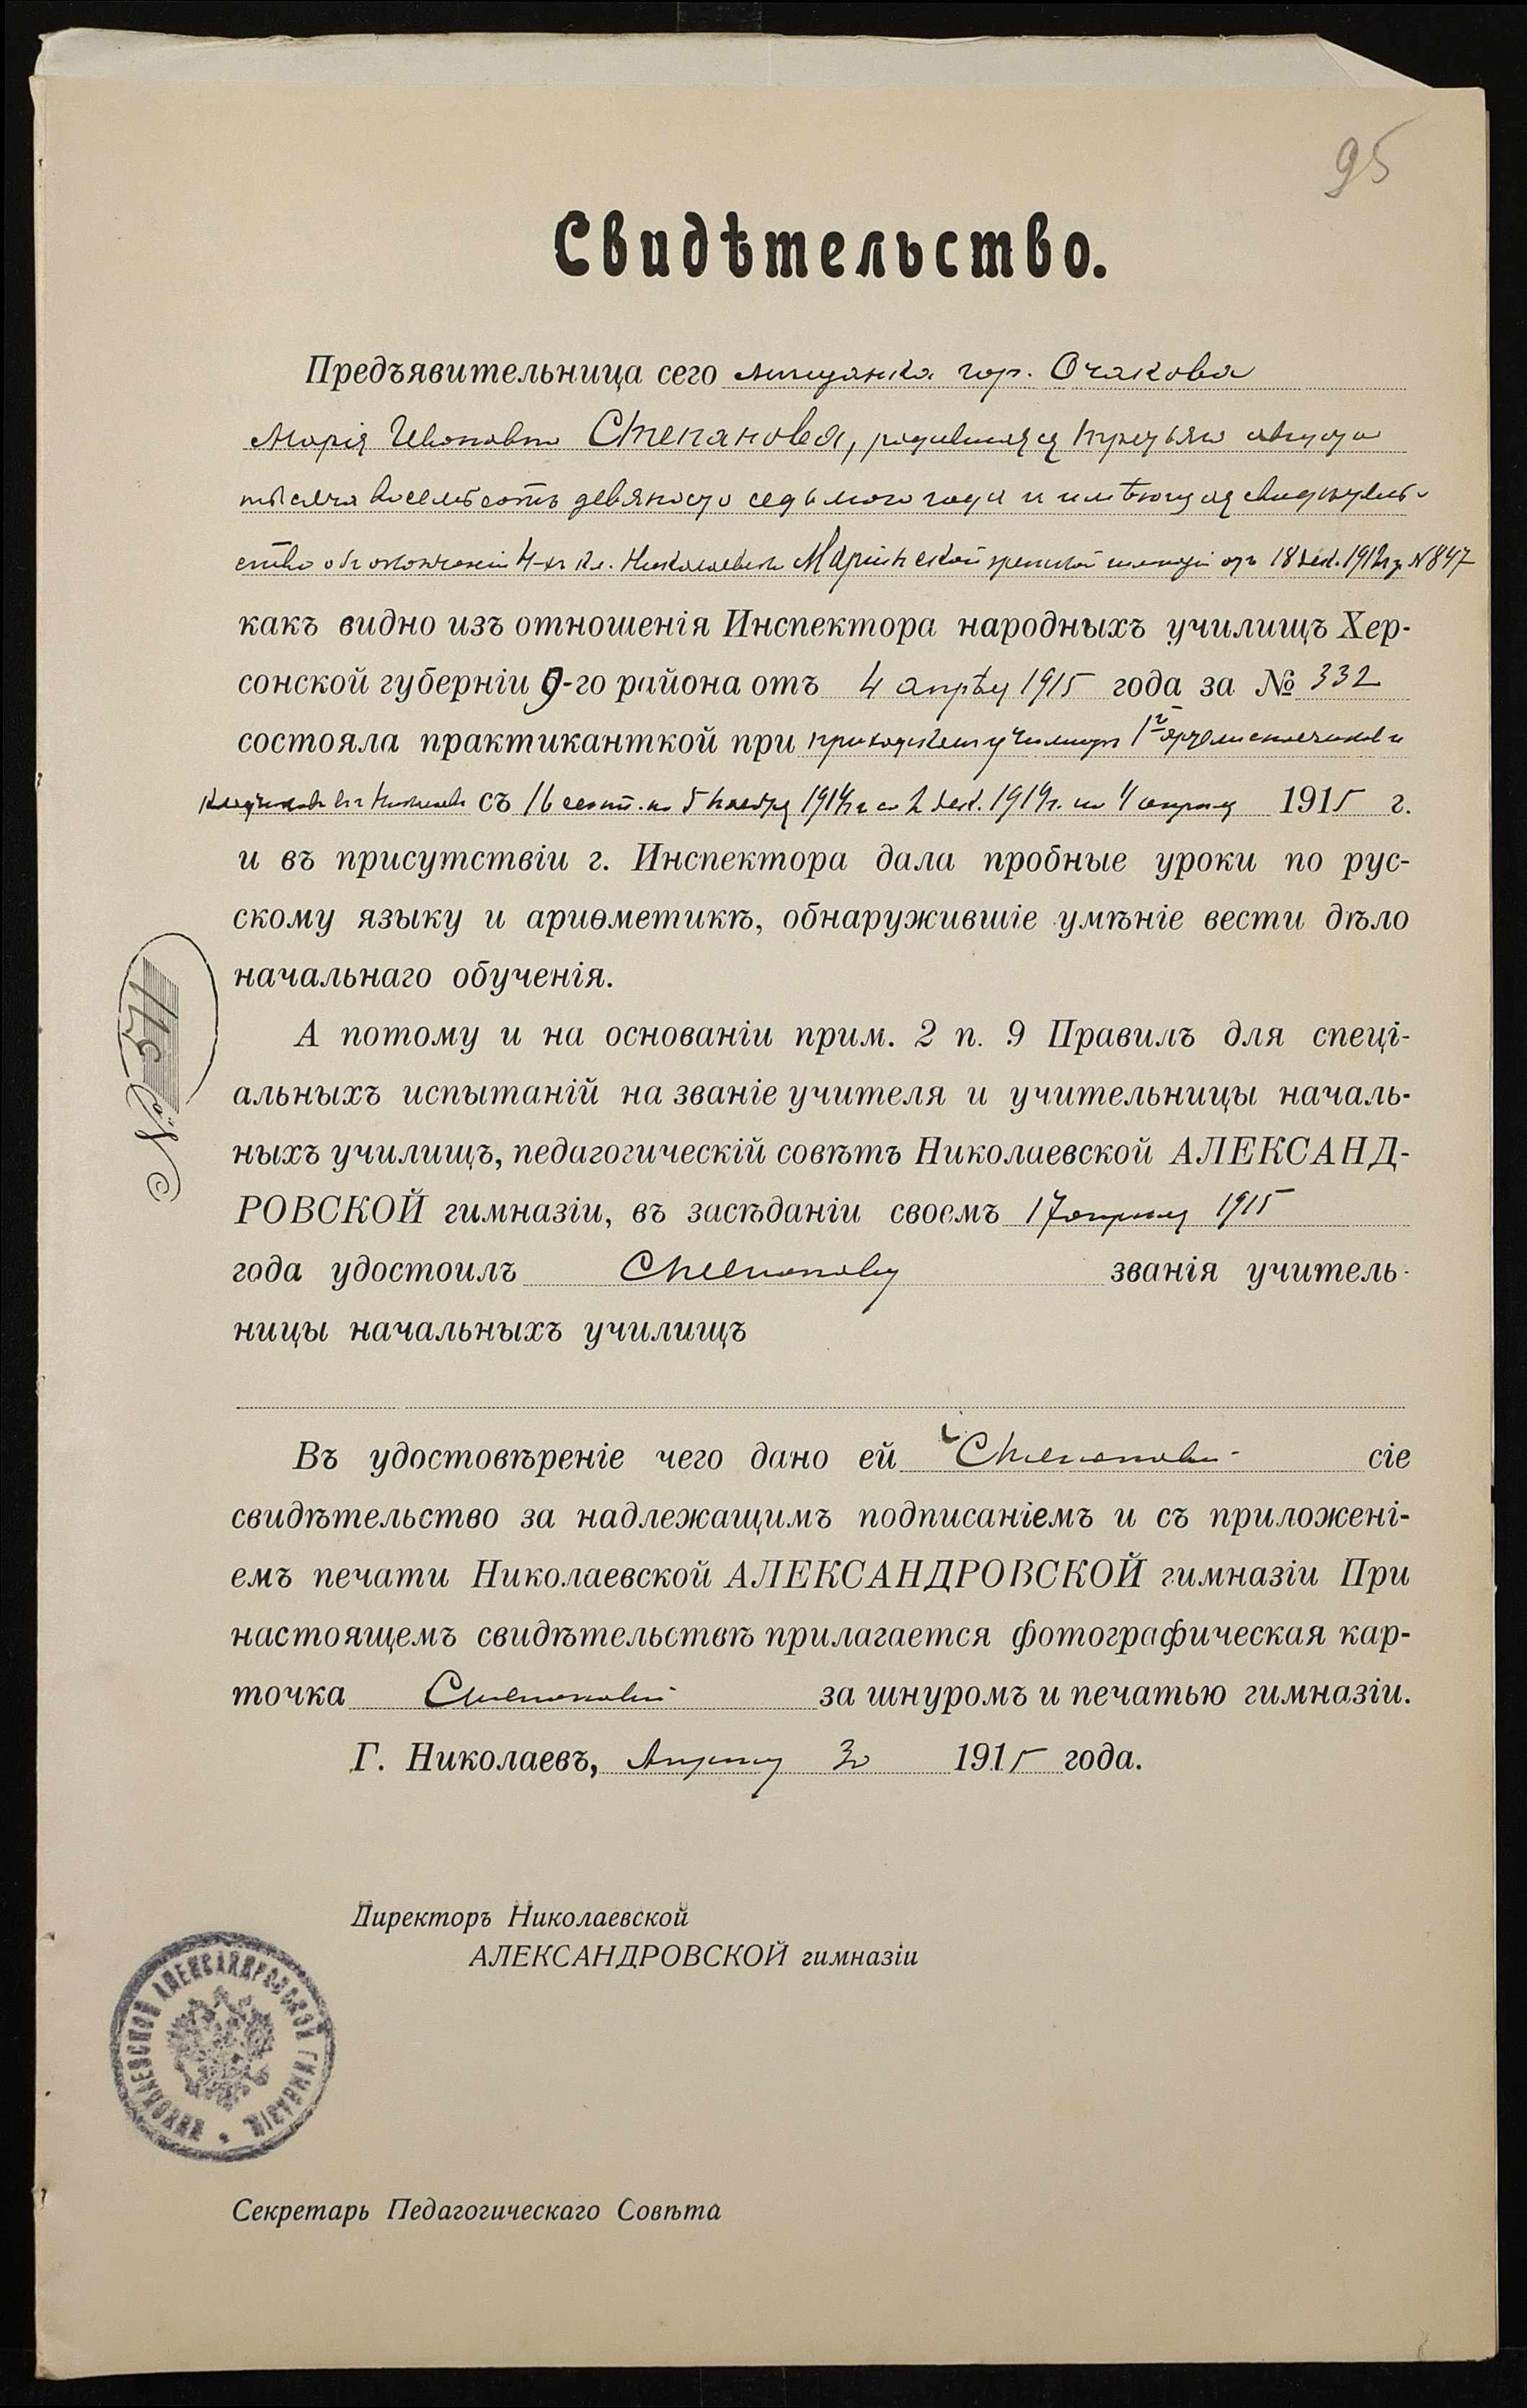 95
Свидѣтельство.
Предъявительница сего мѣщанка гор. Очакова
Марія Ивановна Степанова, родившаяся третьяго августа
тысяча восемьсотъ девяносто седьмого года и имѣющая свидѣтель-
ство объ окончаніи 4-хъ кл. Николаевской Маріинской женской гимназіи отъ 18 дек. 1912 г. № 847
какъ видно изъ отношенія Инспектора народныхъ училищъ Хер-
сонской губерніи 9-го района отъ 4 апрѣля 1915 года за № 332
состояла практиканткой при приходскомъ училищѣ 1й
въ Николаевѣ съ 16 сент. по 5 ноября 1914 г. и со 2 дек. 1914 г. по 4 апрѣля 1915 г.
и въ присутствіи г. Инспектора дала пробные уроки по рус-
скому языку и ариѳметикѣ, обнаружившіе умѣніе вести дѣло
начальнаго обученія.
А потому и на основаніи прим. 2 п. 9 Правилъ для спеці-
альныхъ испытаній на званіе учителя и учительницы началь-
ныхъ училищъ, педагогическій совѣтъ Николаевской АЛЕКСАНД-
РОВСКОЙ гимназіи, въ засѣданіи своемъ 17 апрѣля 1915
года удостоилъ Степанову званія учитель-
ницы начальныхъ училищъ
Въ удостовѣреніе чего дано ей Степановой сіе
свидѣтельство за надлежащимъ подписаніемъ и съ приложені-
емъ печати Николаевской АЛЕКСАНДРОВСКОЙ гимназіи При
настоящемъ свидѣтельствѣ прилагается фотографическая кар-
точка Степановой за шнуромъ и печатью гимназіи.
Г. Николаевъ, Апрѣля 30 1915 года.
Директоръ Николаевской
АЛЕКСАНДРОВСКОЙ гимназіи
НИКОЛАЕВСКОЙ АЛЕКСАНДРОВСКОЙ ГИМНАЗІИ
Секретарь Педагогическаго Совѣта